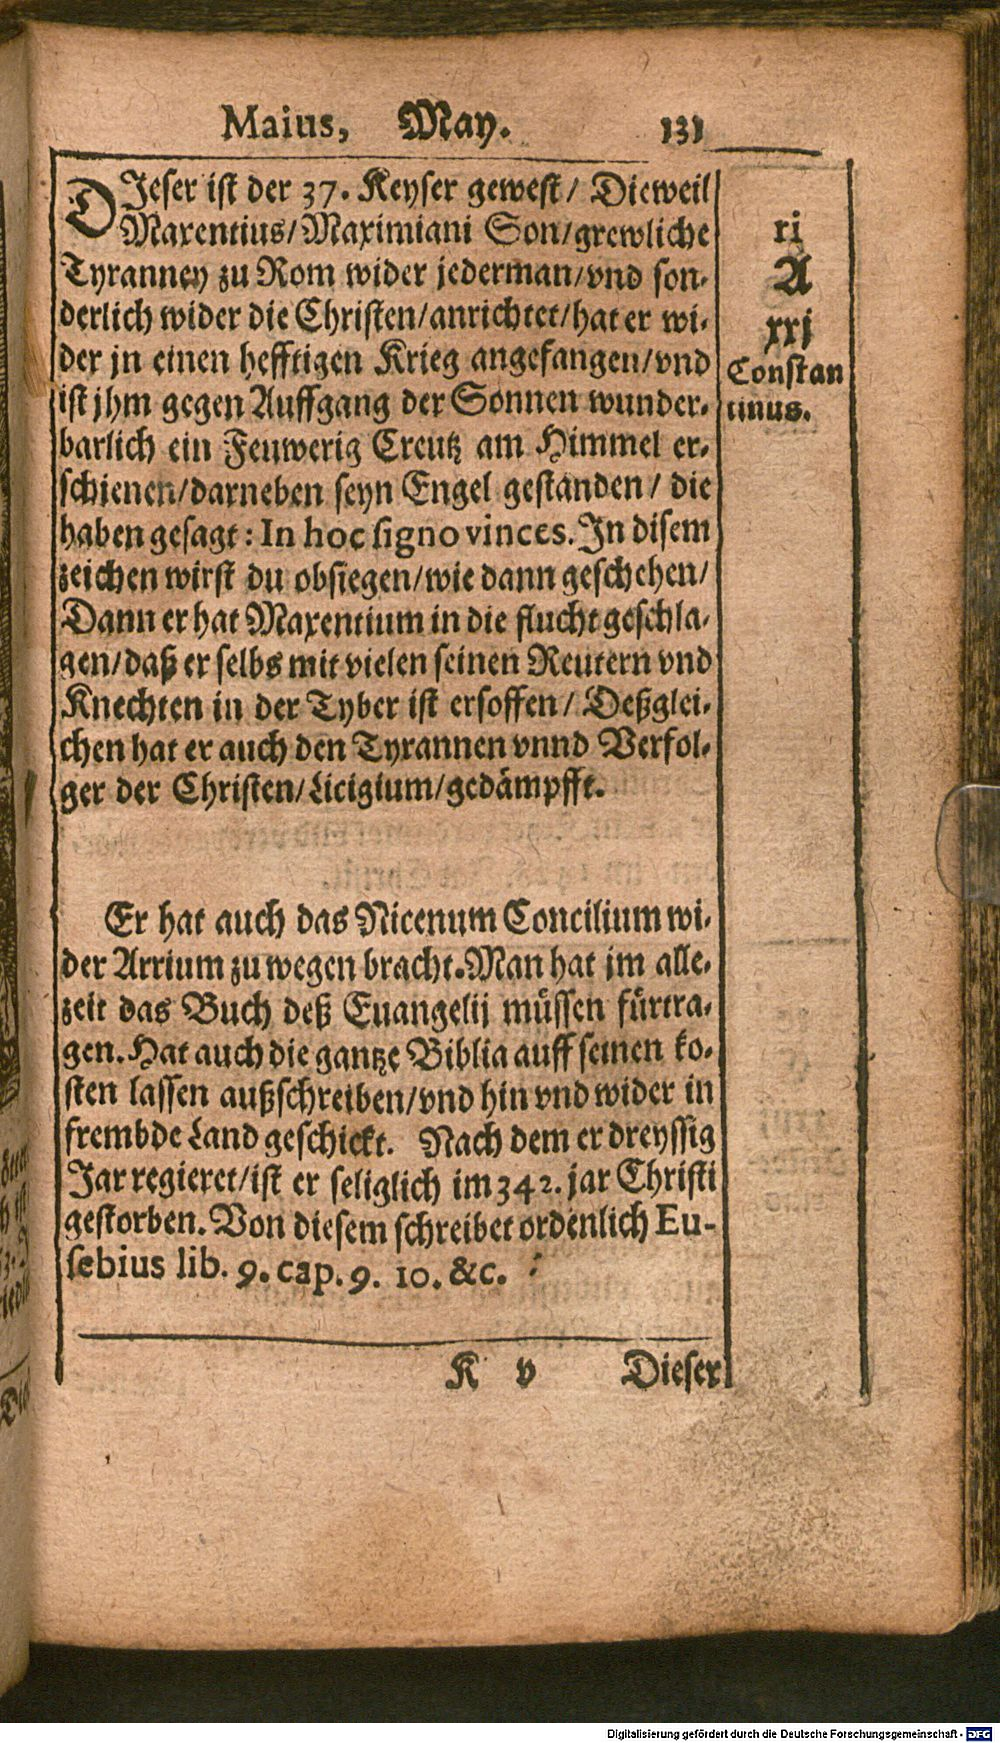 Maius, May. 131
DIeser ist der 37. Keyser gewest/ Dieweil
Maxentius/Maximiani Son/grewliche
Tyranney zu Rom wider jederman/vnd son-
derlich wider die Christen/anrichtet/hat er wi-
der jn einen hefftigen Krieg angefangen/vnd
ist jhm gegen Auffgang der Sonnen wunder-
barlich ein Feuwerig Creutz am Himmel er-
schienen/darneben seyn Engel gestanden/ die
haben gesagt: In hoc signo vinces. In disem
zeichen wirst du obsiegen/wie dann geschehen/
Dann er hat Maxentium in die flucht geschla-
gen/daß er selbs mit vielen seinen Reutern vnd
Knechten in der Tyber ist ersoffen/ Deßglei-
chen hat er auch den Tyrannen vnnd Verfol-
ger der Christen/Licigium/gedämpfft.
Er hat auch das Nicenum Concilium wi-
der Arrium zu wegen bracht. Man hat jm alle-
zeit das Buch deß Euangelij müssen fürtra-
gen. Hat auch die gantze Biblia auff seinen ko-
sten lassen außschreiben/vnd hin vnd wider in
frembde Land geschickt. Nach dem er dreyssig
Jar regieret/ist er seliglich im 342. jar Christi
gestorben. Von diesem schreibet ordenlich Eu-
sebius lib. 9. cap. 9. 10. &c.
K v Dieser
xi
A
xxj
Constan
tinus.
Digitalisierung gefördert durch die Deutsche Forschungsgemeinschaft - DFG